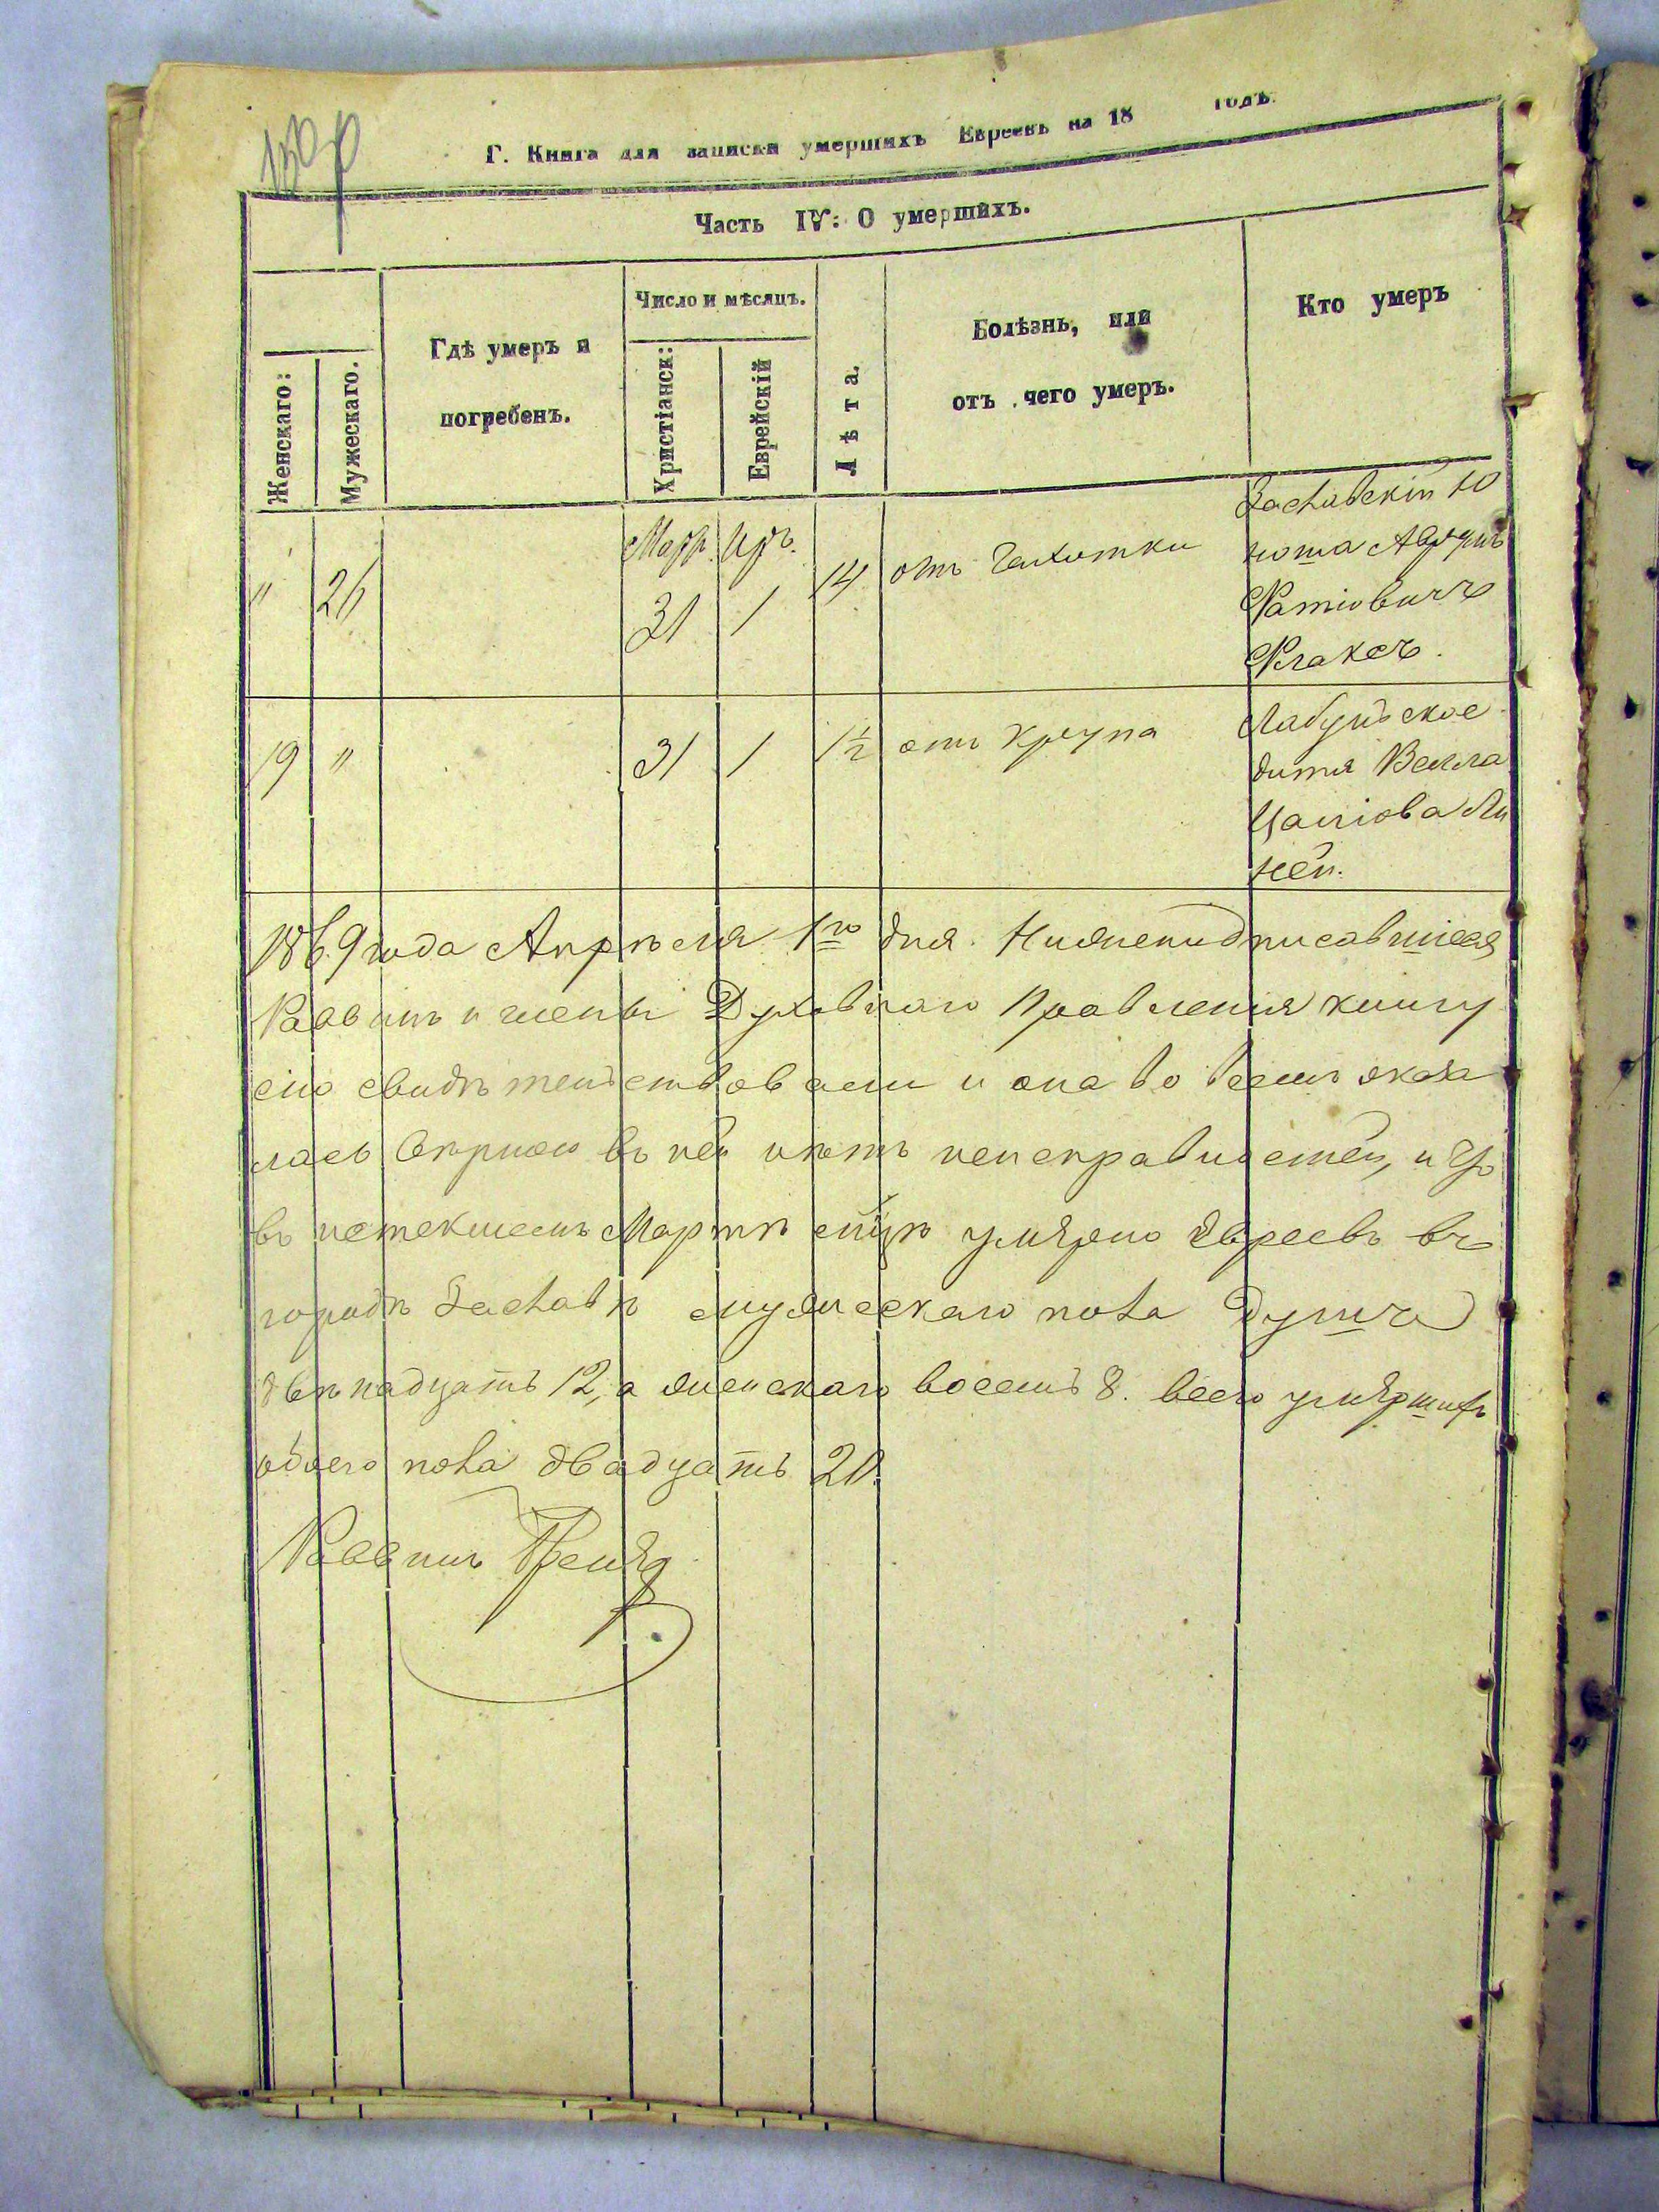 Г. Книга для записки умершихъ Евреевъ на 18 годъ.
Часть IV: О умершихъ.
Женскаго:
Мужескаго.
Гдѣ умеръ и
погребенъ.
Число и мѣсяцъ.
Христіанск:
Еврейскій
Лѣта.
Болѣзнь, или
отъ чего умеръ.
Кто умеръ
"
26
Мар.
31
1
14
отъ Чахотки
Заславскій Ю
ноша
19
"
31
1
1½
отъ Крупа
Лабунское
дитя
1869 года Апрѣля 1го дня. Нижеподписавшіеся
Раввинъ и члены Духовнаго Правленія книгу
сію свидѣтельствовали и она во всемъ оказа
лась вѣрною въ ней нѣтъ неисправностей, и что
въ истекшемъ Мартѣ м-цѣ умерло Евреевъ въ
городѣ Заславѣ мужескаго пола душъ
двѣнадцать 12, а женскаго восемь 8. всего умершихъ
обоего пола двадцать 20.
Раввинъ